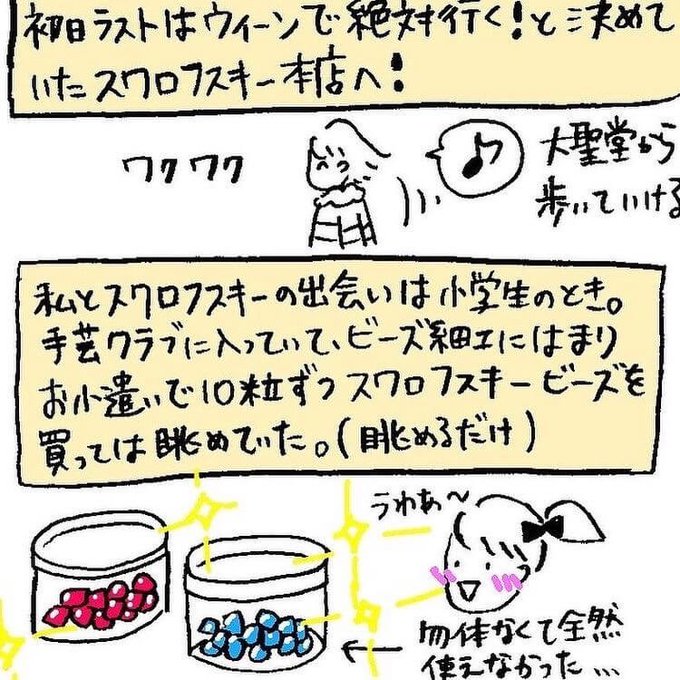 初日ラストはウィーンで絶対行く!と決めて
いたスワロフスキー本店へ!
ワクワク
大聖堂から
歩いていける
私とスワロフスキーの出会いは小学生のとき。
手芸クラブに入っていて、ビーズ細工にはまり
お小遣いで10粒ずつスワロフスキービーズを
買っては眺めていた。(眺めるだけ)
うわあ~
勿体なくて全然
使えなかった...